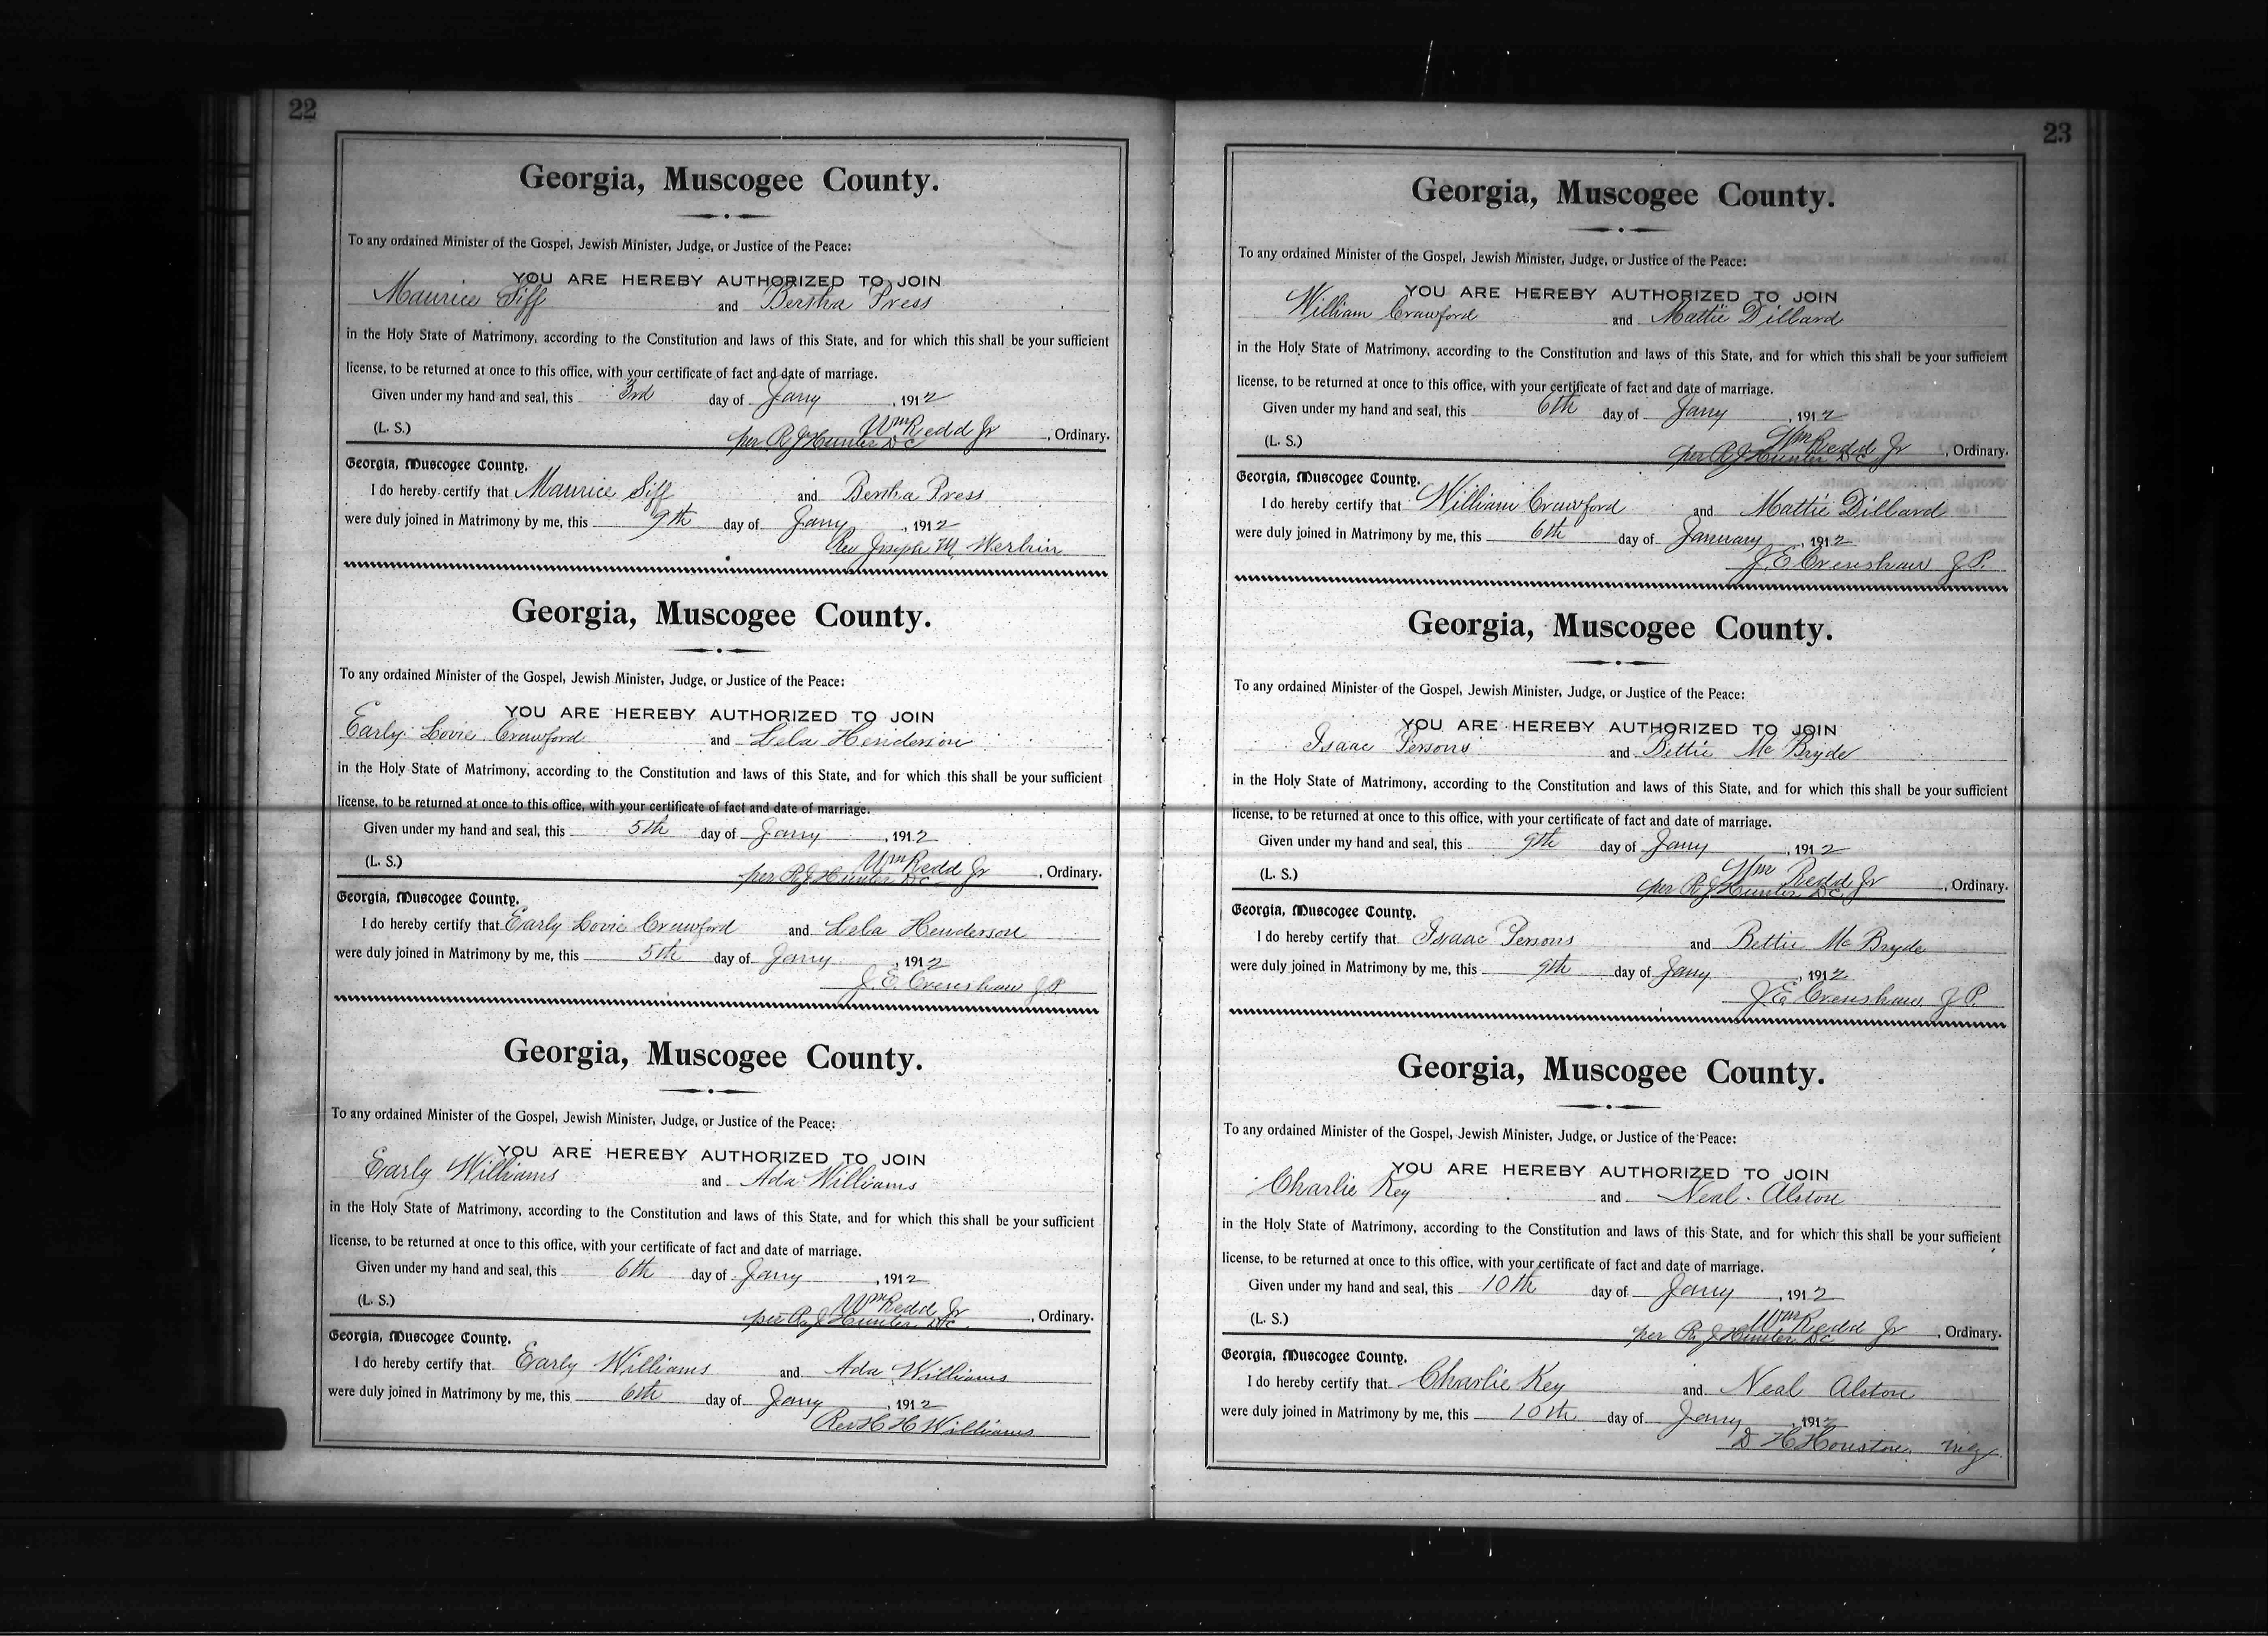 22
Georgia, Muscogee County.
To any ordained Minister of the Gospel, Jewish Minister, Judge, or Justice of the Peace:
YOU ARE HEREBY AUTHORIZED TO JOIN
Maurice Siff and Bertha Press
in the Holy State of Matrimony, according to the Constitution and laws of this State, and for which this shall be your sufficient
license, to be returned at once to this office, with your certificate of fact and date of marriage.
Given under my hand and seal, this 3rd day of Jany, 1912
(L. S.) Wm Redd Jr, Ordinary.
per R J Hunter D C
Georgia, Muscogee County.
I do hereby certify that Maurice Siff and Bertha Press
were duly joined in Matrimony by me, this 9th day of Jany, 1912
Rev Joseph M. Werbin
Georgia, Muscogee County.
To any ordained Minister of the Gospel, Jewish Minister, Judge, or Justice of the Peace:
YOU ARE HEREBY AUTHORIZED TO JOIN
Early Lovie Crawford and Lela Henderson
in the Holy State of Matrimony, according to the Constitution and laws of this State, and for which this shall be your sufficient
license, to be returned at once to this office, with your certificate of fact and date of marriage.
Given under my hand and seal, this 5th day of Jany, 1912
(L. S.) Wm Redd Jr, Ordinary.
per R J Hunter D C
Georgia, Muscogee County.
I do hereby certify that Early Lovie Crawford and Lela Henderson
were duly joined in Matrimony by me, this 5th day of Jany, 1912
J. E. Crenshaw J P.
Georgia, Muscogee County.
To any ordained Minister of the Gospel, Jewish Minister, Judge, or Justice of the Peace:
YOU ARE HEREBY AUTHORIZED TO JOIN
Early Williams and Ada Williams
in the Holy State of Matrimony, according to the Constitution and laws of this State, and for which this shall be your sufficient
license, to be returned at once to this office, with your certificate of fact and date of marriage.
Given under my hand and seal, this 6th day of Jany, 1912
(L. S.) Wm Redd Jr, Ordinary.
per R J Hunter D C
Georgia, Muscogee County.
I do hereby certify that Early Williams and Ada Williams
were duly joined in Matrimony by me, this 6th day of Jany, 1912
Rev H H Williams
23
Georgia, Muscogee County.
To any ordained Minister of the Gospel, Jewish Minister, Judge, or Justice of the Peace:
YOU ARE HEREBY AUTHORIZED TO JOIN
William Crawford and Mattie Dillard
in the Holy State of Matrimony, according to the Constitution and laws of this State, and for which this shall be your sufficient
license, to be returned at once to this office, with your certificate of fact and date of marriage.
Given under my hand and seal, this 6th day of Jany, 1912
(L. S.) Wm Redd Jr, Ordinary.
per R J Hunter D C
Georgia, Muscogee County.
I do hereby certify that William Crawford and Mattie Dillard
were duly joined in Matrimony by me, this 6th day of January, 1912
J. E. Crenshaw J P.
Georgia, Muscogee County.
To any ordained Minister of the Gospel, Jewish Minister, Judge, or Justice of the Peace:
YOU ARE HEREBY AUTHORIZED TO JOIN
Isaac Persons and Bettie McBryde
in the Holy State of Matrimony, according to the Constitution and laws of this State, and for which this shall be your sufficient
license, to be returned at once to this office, with your certificate of fact and date of marriage.
Given under my hand and seal, this 9th day of Jany, 1912
(L. S.) Wm Redd Jr, Ordinary.
per R J Hunter D C
Georgia, Muscogee County.
I do hereby certify that Isaac Persons and Bettie McBryde
were duly joined in Matrimony by me, this 9th day of Jany, 1912
J. E. Crenshaw J P.
Georgia, Muscogee County.
To any ordained Minister of the Gospel, Jewish Minister, Judge, or Justice of the Peace:
YOU ARE HEREBY AUTHORIZED TO JOIN
Charlie Key and Neal Alston
in the Holy State of Matrimony, according to the Constitution and laws of this State, and for which this shall be your sufficient
license, to be returned at once to this office, with your certificate of fact and date of marriage.
Given under my hand and seal, this 10th day of Jany, 1912
(L. S.) Wm Redd Jr, Ordinary.
per R J Hunter D C
Georgia, Muscogee County.
I do hereby certify that Charlie Key and Neal Alston
were duly joined in Matrimony by me, this 10th day of Jany, 1912
D H Houston